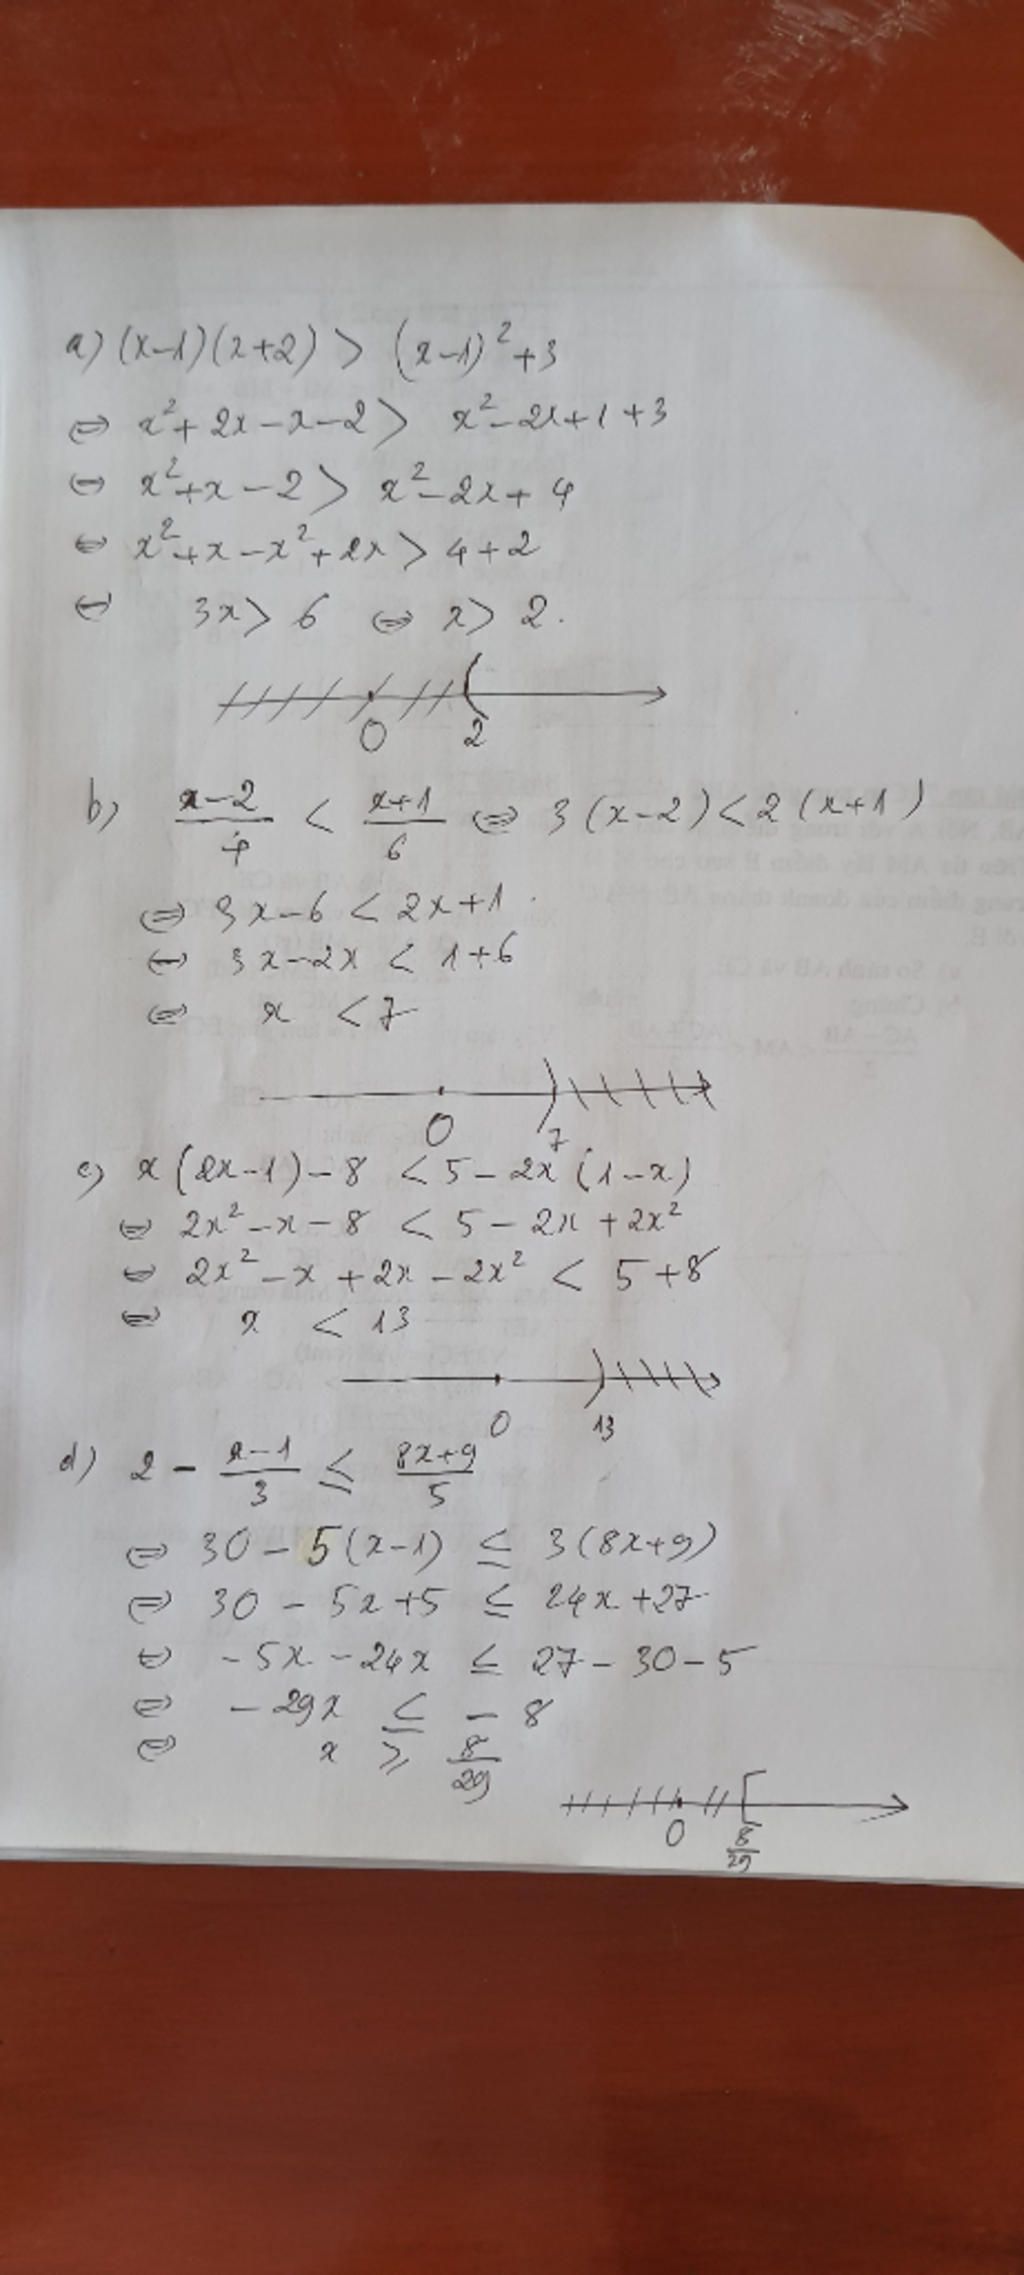 a) (x-1)(x+2) > (x-1)² + 3
⇔ x² + 2x - x - 2 > x² - 2x + 1 + 3
⇔ x² + x - 2 > x² - 2x + 4
⇔ x² + x - x² + 2x > 4 + 2
⇔ 3x > 6 ⇔ x > 2.
0 2
b) (x-2)/4 < (x+1)/6 ⇔ 3(x-2) < 2(x+1)
⇔ 3x - 6 < 2x + 1
⇔ 3x - 2x < 1 + 6
⇔ x < 7
0 7
c) x(2x-1) - 8 < 5 - 2x(1-x)
⇔ 2x² - x - 8 < 5 - 2x + 2x²
⇔ 2x² - x + 2x - 2x² < 5 + 8
⇔ x < 13
0 13
d) 2 - (x-1)/3 ≤ (8x+9)/5
⇔ 30 - 5(x-1) ≤ 3(8x+9)
⇔ 30 - 5x + 5 ≤ 24x + 27
⇔ -5x - 24x ≤ 27 - 30 - 5
⇔ -29x ≤ -8
⇔ x ≥ 8/29
0 8/29